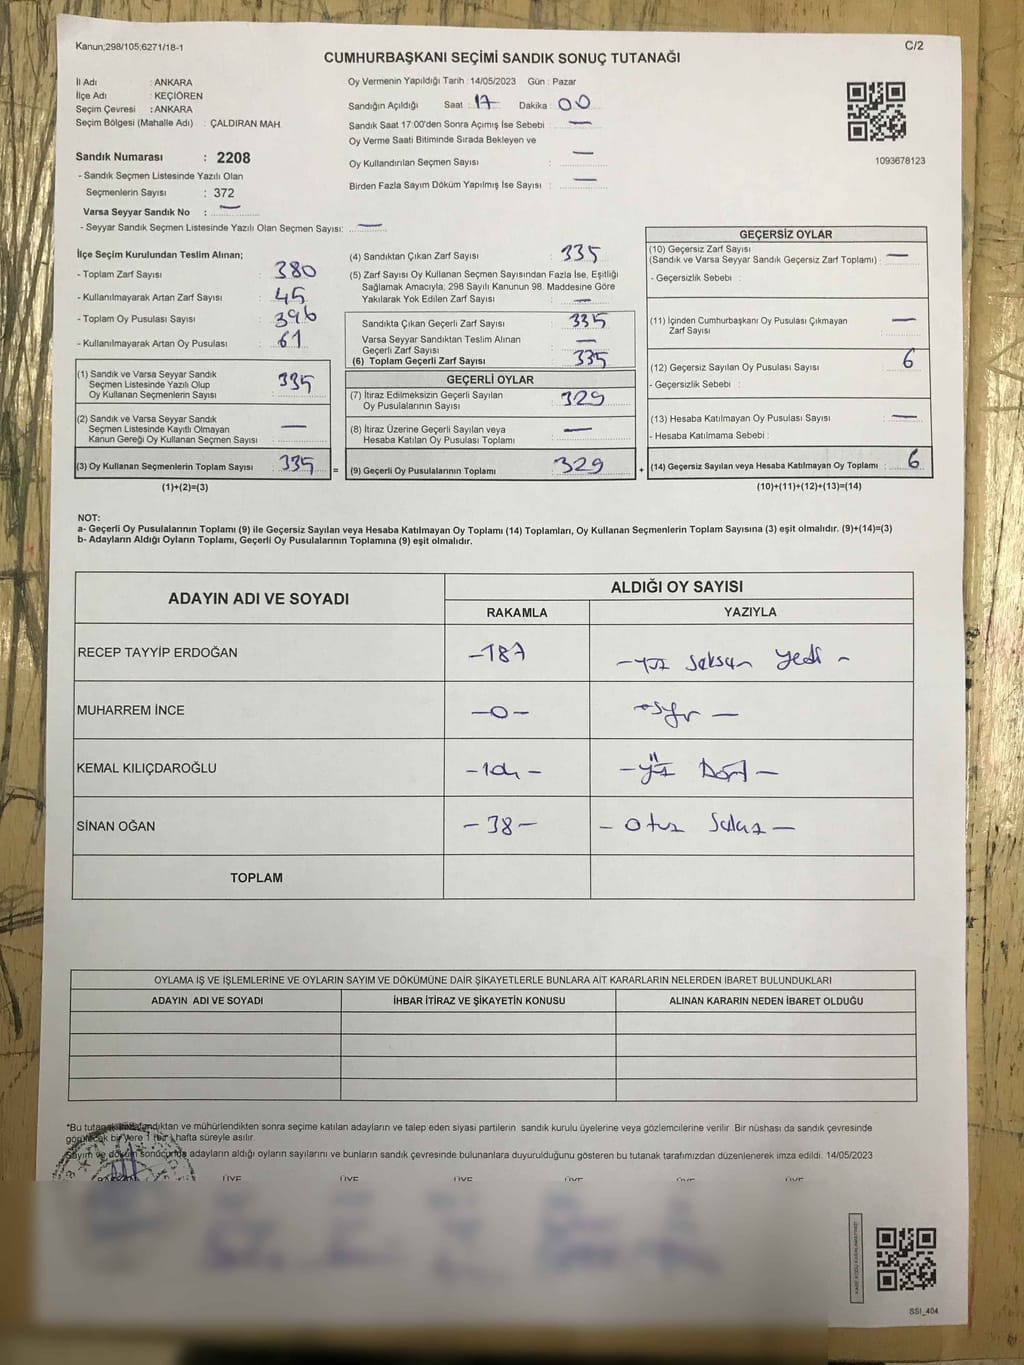 Kanun;298/105;6271/18-1
C/2
CUMHURBAŞKANI SEÇİMİ SANDIK SONUÇ TUTANAĞI
İl Adı : ANKARA
İlçe Adı : KEÇİÖREN
Seçim Çevresi : ANKARA
Seçim Bölgesi (Mahalle Adı) : ÇALDIRAN MAH.
Oy Vermenin Yapıldığı Tarih : 14/05/2023 Gün : Pazar
Sandığın Açıldığı Saat : 17 Dakika : 00
Sandık Saat 17:00'den Sonra Açımış İse Sebebi : —
Oy Verme Saati Bitiminde Sırada Bekleyen ve
Oy Kullandırılan Seçmen Sayısı : —
Birden Fazla Sayım Döküm Yapılmış İse Sayısı : —
1093678123
Sandık Numarası : 2208
- Sandık Seçmen Listesinde Yazılı Olan
Seçmenlerin Sayısı : 372
Varsa Seyyar Sandık No : —
- Seyyar Sandık Seçmen Listesinde Yazılı Olan Seçmen Sayısı: —
İlçe Seçim Kurulundan Teslim Alınan;
- Toplam Zarf Sayısı : 380
- Kullanılmayarak Artan Zarf Sayısı : 45
- Toplam Oy Pusulası Sayısı : 396
- Kullanılmayarak Artan Oy Pusulası : 61
(1) Sandık ve Varsa Seyyar Sandık
Seçmen Listesinde Yazılı Olup
Oy Kullanan Seçmenlerin Sayısı : 335
(2) Sandık ve Varsa Seyyar Sandık
Seçmen Listesinde Kayıtlı Olmayan
Kanun Gereği Oy Kullanan Seçmen Sayısı : —
(3) Oy Kullanan Seçmenlerin Toplam Sayısı : 335
(1)+(2)=(3)
(4) Sandıktan Çıkan Zarf Sayısı : 335
(5) Zarf Sayısı Oy Kullanan Seçmen Sayısından Fazla İse, Eşitliği
Sağlamak Amacıyla; 298 Sayılı Kanunun 98. Maddesine Göre
Yakılarak Yok Edilen Zarf Sayısı : —
Sandıkta Çıkan Geçerli Zarf Sayısı : 335
Varsa Seyyar Sandıktan Teslim Alınan
Geçerli Zarf Sayısı : —
(6) Toplam Geçerli Zarf Sayısı : 335
GEÇERLİ OYLAR
(7) İtiraz Edilmeksizin Geçerli Sayılan
Oy Pusulalarının Sayısı : 329
(8) İtiraz Üzerine Geçerli Sayılan veya
Hesaba Katılan Oy Pusulası Toplamı : —
= (9) Geçerli Oy Pusulalarının Toplamı : 329
GEÇERSİZ OYLAR
(10) Geçersiz Zarf Sayısı
(Sandık ve Varsa Seyyar Sandık Geçersiz Zarf Toplamı) : —
- Geçersizlik Sebebi :
(11) İçinden Cumhurbaşkanı Oy Pusulası Çıkmayan
Zarf Sayısı : —
(12) Geçersiz Sayılan Oy Pusulası Sayısı : 6
- Geçersizlik Sebebi :
(13) Hesaba Katılmayan Oy Pusulası Sayısı : —
- Hesaba Katılmama Sebebi :
+ (14) Geçersiz Sayılan veya Hesaba Katılmayan Oy Toplamı : 6
(10)+(11)+(12)+(13)=(14)
NOT:
a- Geçerli Oy Pusulalarının Toplamı (9) ile Geçersiz Sayılan veya Hesaba Katılmayan Oy Toplamı (14) Toplamları, Oy Kullanan Seçmenlerin Toplam Sayısına (3) eşit olmalıdır. (9)+(14)=(3)
b- Adayların Aldığı Oyların Toplamı, Geçerli Oy Pusulalarının Toplamına (9) eşit olmalıdır.
ADAYIN ADI VE SOYADI
ALDIĞI OY SAYISI
RAKAMLA YAZIYLA
RECEP TAYYİP ERDOĞAN -187 -yüz seksen yedi -
MUHARREM İNCE -0- -sıfır-
KEMAL KILIÇDAROĞLU -104- -yüz Dört-
SİNAN OĞAN -38- - otuz sekiz -
TOPLAM
OYLAMA İŞ VE İŞLEMLERİNE VE OYLARIN SAYIM VE DÖKÜMÜNE DAİR ŞİKAYETLERLE BUNLARA AİT KARARLARIN NELERDEN İBARET BULUNDUKLARI
ADAYIN ADI VE SOYADI İHBAR İTİRAZ VE ŞİKAYETİN KONUSU ALINAN KARARIN NEDEN İBARET OLDUĞU
*Bu tutanak imzalandıktan ve mühürlendikten sonra seçime katılan adayların ve talep eden siyasi partilerin sandık kurulu üyelerine veya gözlemcilerine verilir. Bir nüshası da sandık çevresinde
görülecek bir yere 1 (bir) hafta süreyle asılır.
Sayım ve döküm sonucunda adayların aldığı oyların sayılarını ve bunların sandık çevresinde bulunanlara duyurulduğunu gösteren bu tutanak tarafımızdan düzenlenerek imza edildi. 14/05/2023
ÜYE ÜYE ÜYE ÜYE ÜYE ÜYE
SSİ_404